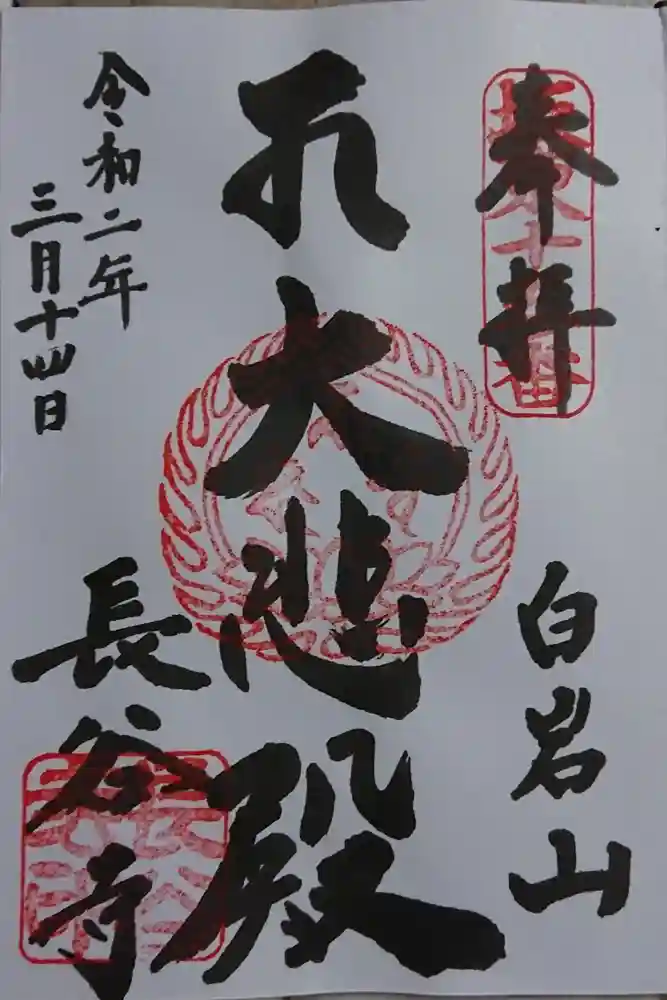 奉拝
白岩山
大悲殿
令和二年
三月十四日
長谷寺